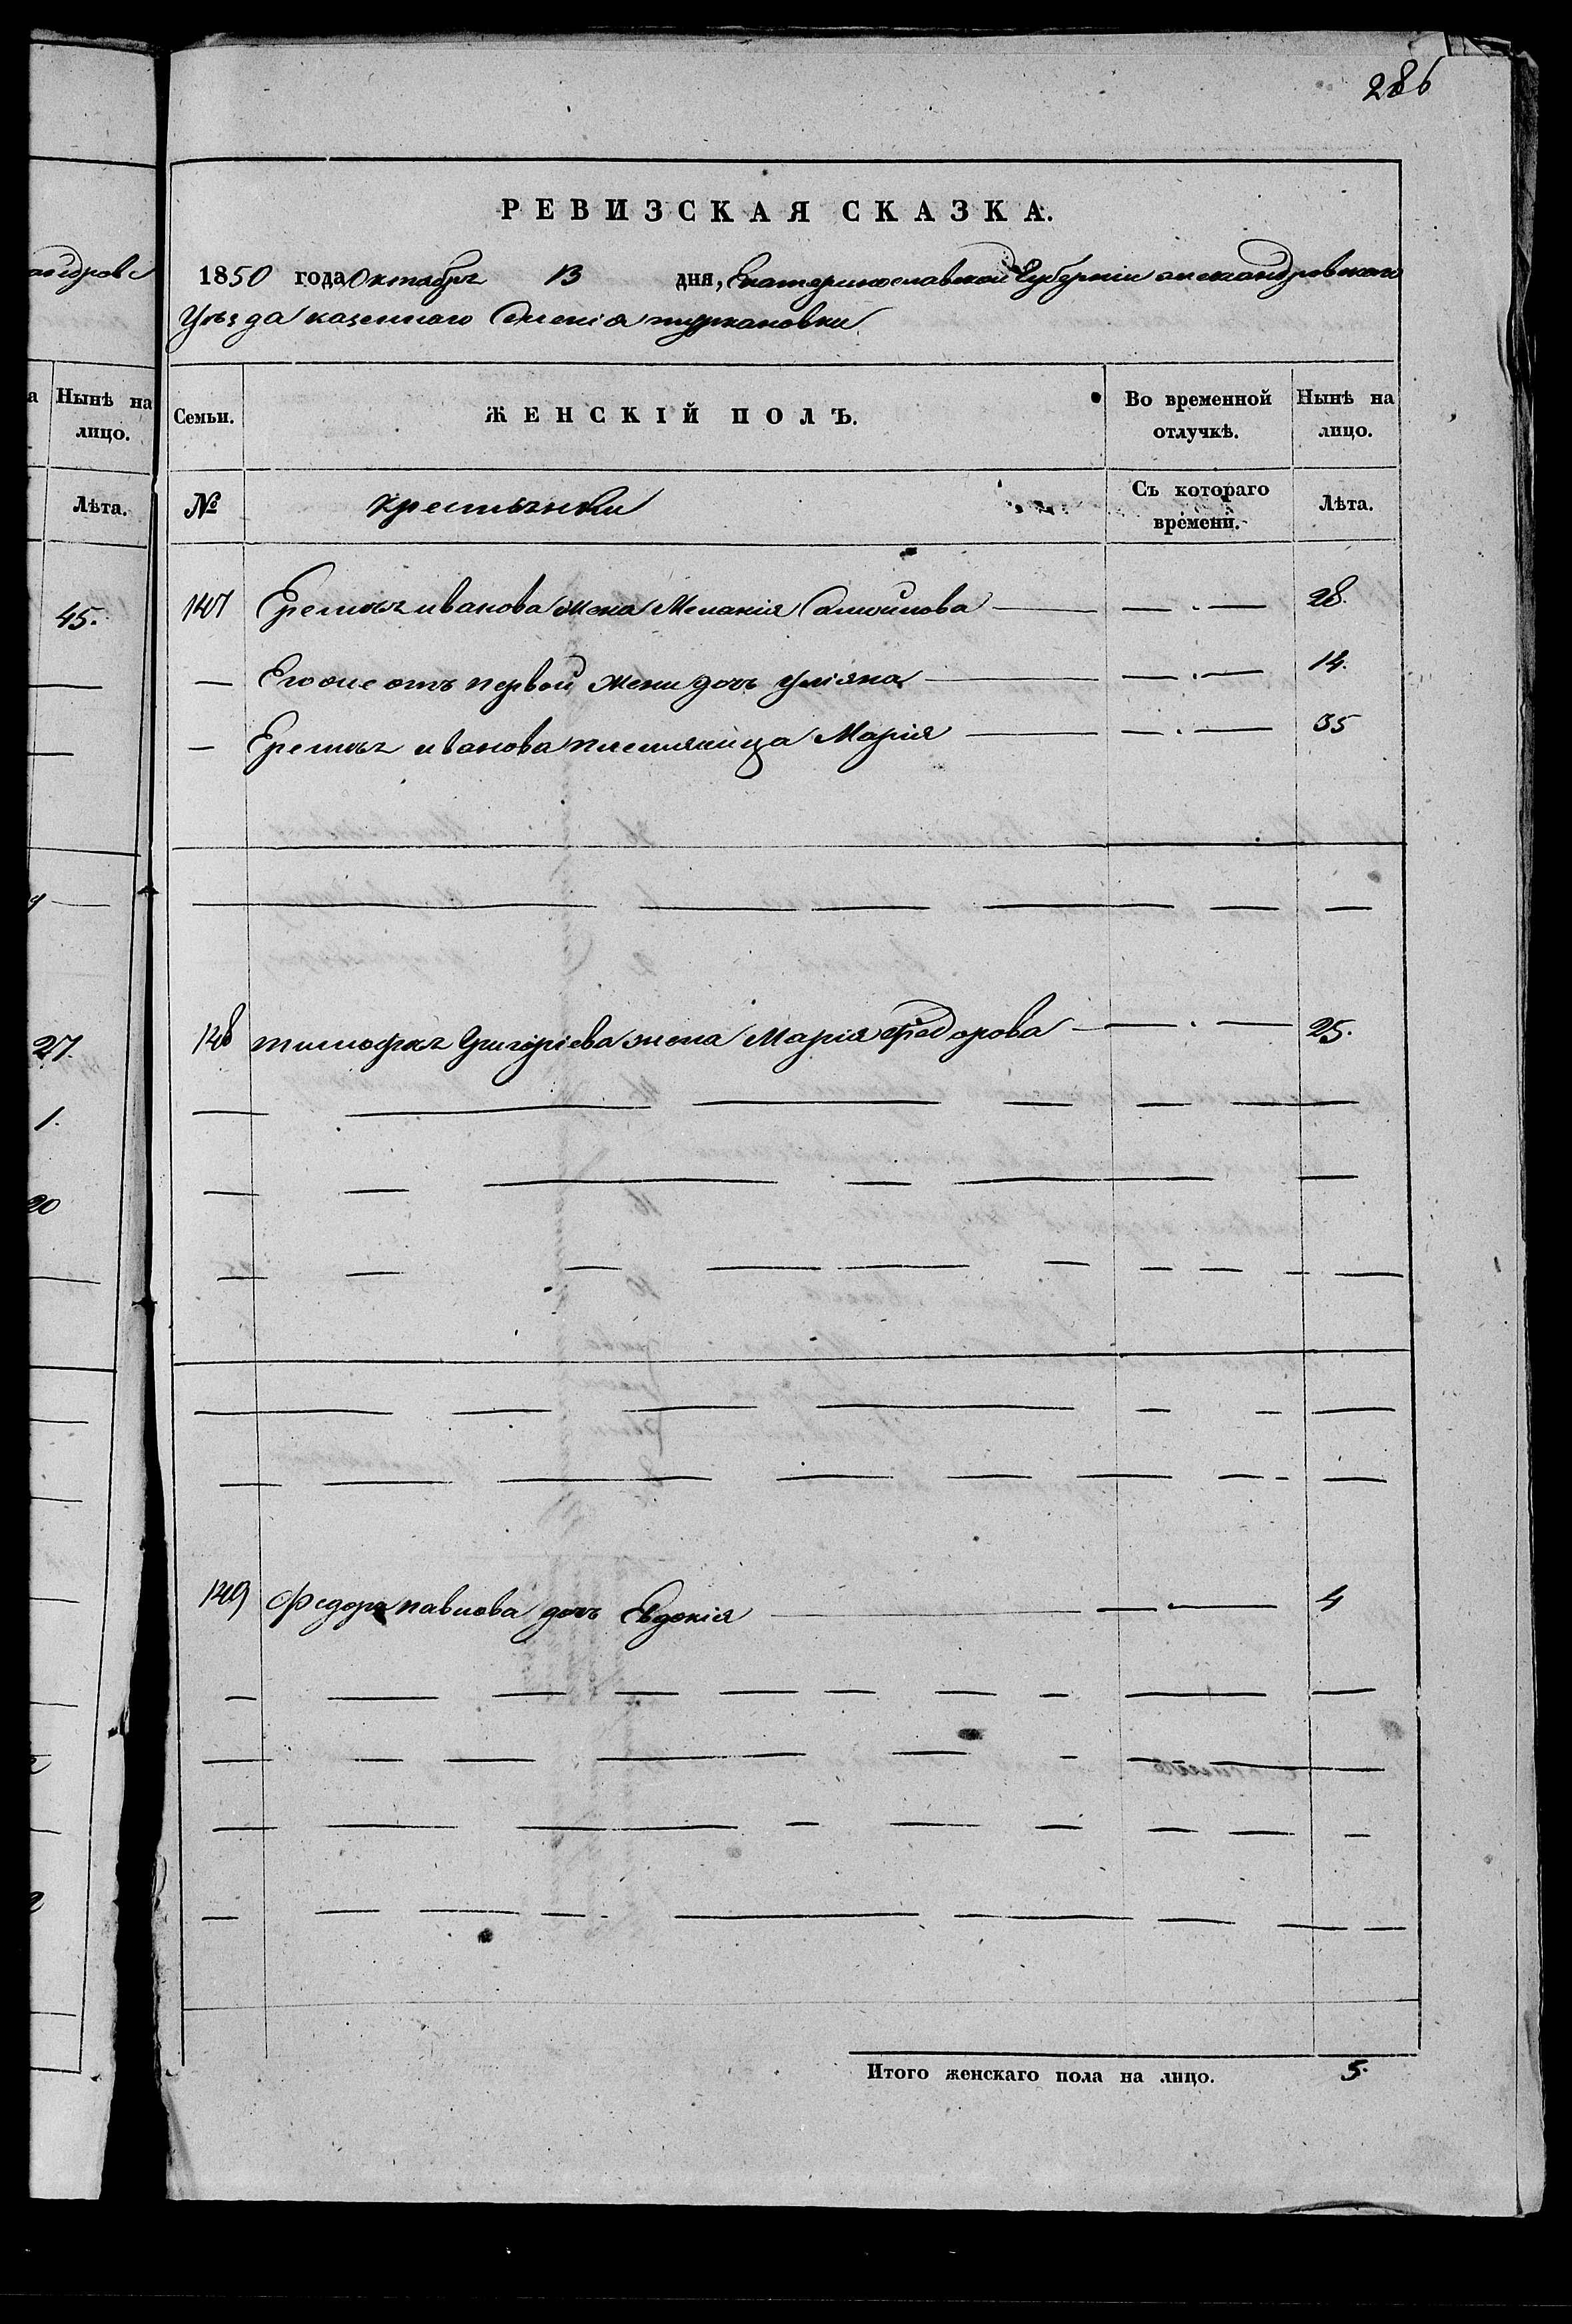 286
РЕВИЗСКАЯ СКАЗКА.
1850 года Октября 13 дня, Екатеринославской Губерніи александровскаго
Уѣзда казеннаго Селенія туркановки
Семьи. ЖЕНСКІЙ ПОЛЪ. Во временной отлучкѣ. Нынѣ на лицо.
№ крестьянки Съ котораго времени. Лѣта.
147 Еремѣя иванова жена Меланія Самойлова — — . — 28.
— Его же отъ первой жени дочь Уліяна — — . — 14.
— Еремѣя иванова племяница Марія — — . — 35
148 тимофѣя Григоріева жена Марія Федорова — — . — 25.
149 Федора павлова дочь Евдокія — — . — 4
Итого женскаго пола на лицо. 5.
Нынѣ на лицо.
Лѣта.
45.
27.
1.
20